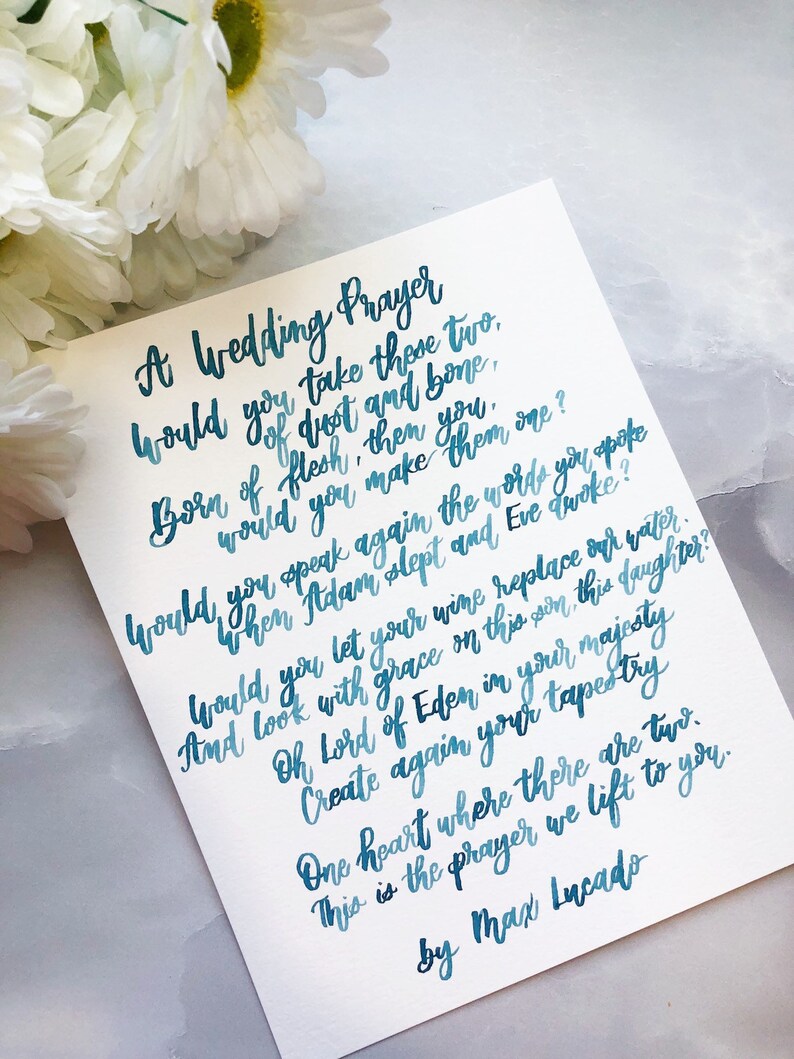 A Wedding Prayer
Would you take these two,
of dust and bone,
Born of flesh, then you,
would you make them one?
Would you speak again the words you spoke
When Adam slept and Eve awoke?
Would you let your wine replace our water.
And look with grace on this son, this daughter?
Oh Lord of Eden in your majesty
Create again your tapestry
One heart where there are two.
This is the prayer we lift to you.
by Max Lucado